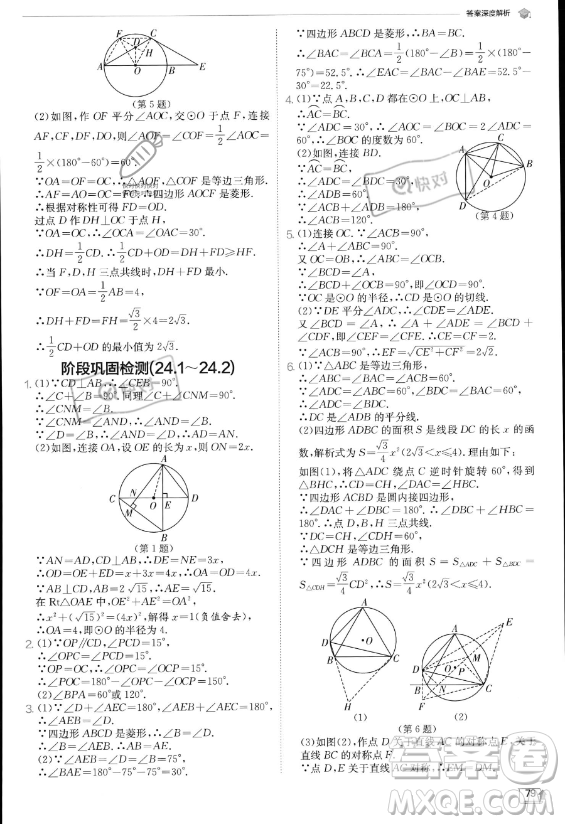 答案深度解析
F C
A O B E
(第5题)
(2)如图,作OF平分∠AOC,交⊙O于点F,连接
AF,CF,DF,则∠AOF=∠COF=1/2∠AOC=
1/2×(180°-60°)=60°.
∵OA=OF=OC,∴△AOF,△COF是等边三角形.
∴AF=AO=OC=FC.∴四边形AOCF是菱形.
∴根据对称性可得FD=OD.
过点D作DH⊥OC于点H.
∵OA=OC,∴∠OCA=∠OAC=30°.
∴DH=1/2CD.∴1/2CD+OD=DH+FD≥HF.
∴当F,D,H三点共线时,DH+FD的值最小.
∵OF=OA=1/2AB=4,
∴DH+FD=HF=√3/2×4=2√3.
∴1/2CD+OD的最小值为2√3.
阶段巩固检测(24.1~24.2)
1.(1)∵CD⊥AB,∴∠CEB=90°.
∴∠C+∠B=90°.同理∠C+∠CNM=90°.
∴∠CNM=∠B.
∵∠CNM=∠AND,∴∠AND=∠B.
∵∠D=∠B,∴∠AND=∠D.∴AN=AD.
(2)如图,连接OA,设OE的长为x,则ON=2x.
A
C N O E D
M
B
(第1题)
∵AN=AD,CD⊥AB,∴DE=NE=3x.
∴OD=OE+ED=x+3x=4x.∴OA=OD=4x.
∵AB⊥CD,∴AE=1/2AB=2√15×1/2=√15.
在Rt△OAE中,OE²+AE²=OA²,
∴x²+(√15)²=(4x)²,解得x=1(负值舍去).
∴OA=4,即⊙O的半径为4.
2.(1)∵OP∥CD,∠PCD=15°,
∴∠OPC=∠PCD=15°.
∵OP=OC,∴∠OCP=∠OPC=15°.
∴∠POC=180°-15°-15°=150°.
(2)∠BPA=60°或120°.
3.(1)∵∠D+∠AEC=180°,∠AEB+∠AEC=180°,
∴∠AEB=∠D.
∵四边形ABCD是菱形,∴∠B=∠D.
∴∠B=∠AEB.∴AB=AE.
∴∠BAE=180°-75°-75°=30°.
∵四边形ABCD是菱形,
∴∠BAC=∠BCA=1/2(180°-∠B)=1/2(180°-
75°)=52.5°.
∴∠EAC=∠BAC-∠BAE=52.5°-30°=22.5°.
4.(1)∵点A,B,C,D都在⊙O上,OC⊥AB,
∴AC=BC.
∵∠ADC=30°,∴∠AOC=∠BOC=2∠ADC=
60°.∴∠BOC的度数为60°.
(2)如图,连接BD.
∵AC=BC,
∴∠ADC=∠BDC=30°.
∴∠ADB=60°.
∵∠ACB+∠ADB=180°,
∴∠ACB=120°.
A C B O D
(第4题)
5.(1)连接OC.∵OC=OA,∴∠OCA=∠OAC.
又∠DCB=∠OAC,∴∠OCA=∠DCB.
∵AB是⊙O的直径,∴∠ACB=90°.
∴∠OCA+∠OCB=90°.
∴∠DCB+∠OCB=90°,即∠OCD=90°.
∵OC是⊙O的半径,∴CD是⊙O的切线.
(2)∵DE平分∠ADC,∴∠CDE=∠ADE.
又∠CDE+∠DCB=∠CEF,
∠CFE=∠ADE+∠OAC,∴∠CEF=∠CFE.
∵∠ECF=90°,CE=CF=2.∴EF=√(CE²+CF²)=2√2.
6.(1)∵△ABC是等边三角形,
∴∠ABC=∠BAC=60°.
∵∠ADC=∠ABC=60°,∠BDC=∠BAC=60°,
∴∠ADC=∠BDC.
∴DC是∠ADB的平分线.
(2)四边形ADBC的面积S是线段DC的长x的函
数,解析式为S=√3/4x²(2√3<x≤4).理由如下:
如图(1),将△ADC绕点C逆时针旋转60°,得到
△BHC,∴CD=CH,∠DAC=∠HBC.
∵四边形ACBD是圆内接四边形,
∴∠DAC+∠DBC=180°.
∴∠DBC+∠HBC=180°.
∴点D,B,H共线.
∵CD=CH,∠CDH=60°,
∴△DCH是等边三角形.
∵四边形ADBC的面积S=S△ADC+S△BDC=
S△CDH=√3/4CD²,∴S=√3/4x²(2√3<x≤4).
A O D B C H
(1)
A E M O P D N B C F
(2)
(第6题)
(3)如图(2),作点D关于直线AC的对称点E,作点D关于
直线BC的对称点F.
∵点D,E关于直线AC对称,∴EM=DM.
79